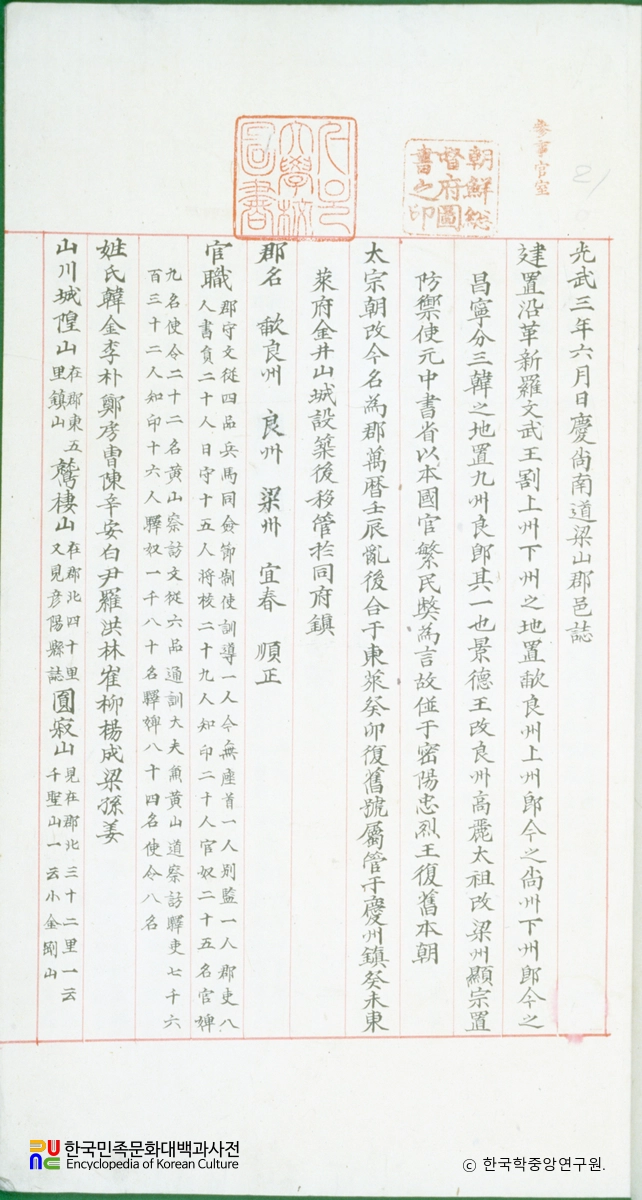 參事官室
21
朝鮮總
督府圖
書之印
大學校
圖書
光武三年六月日慶尙南道梁山郡邑誌
建置沿革新羅文武王割上州下州之地置歃良州上州卽今之尙州下州卽今之
昌寧分三韓之地置九州良卽其一也景德王改良州高麗太祖改梁州顯宗置
防禦使元中書省以本國官繁民獘爲言故倂于密陽忠烈王復舊本朝
太宗朝改今名爲郡萬曆壬辰亂後合于東萊癸卯復舊號屬管于慶州鎭癸未東
萊府金井山城設築後移管於同府鎭
郡名 歃良州 良州 梁州 宜春 順正
官職 郡守文從四品兵馬同僉節制使訓導一人今無座首一人別監一人郡吏八
人書負二十人日守十五人將校二十九人知印二十人官奴二十五名官婢
九名使令二十二名黃山察訪文從六品通訓大夫兼黃山道察訪驛吏七千六
百三十二人知印十六人驛奴一千八十名驛婢八十四名使令八名
姓氏韓金李朴鄭房曺陳辛安白尹羅洪林崔柳楊成梁孫姜
山川城隍山 在郡東五里鎭山 鷲棲山 在郡北四十里又見彦陽縣誌 圓寂山 見在郡北三十二里一云千聖山一云小金剛山
한국민족문화대백과사전
Encyclopedia of Korean Culture
© 한국학중앙연구원.